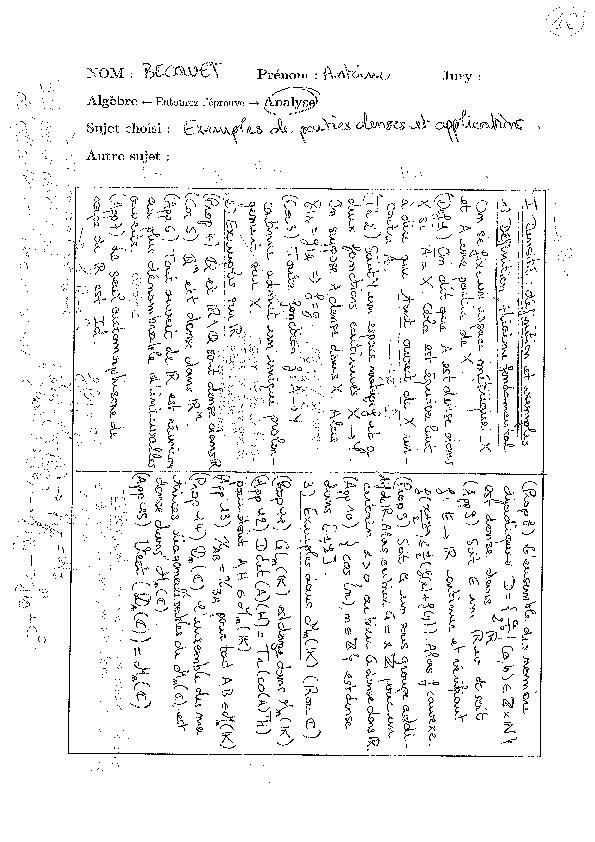 NOM : BECQUET Prénom : Antoine Jury :
Algèbre ← Entourez l'épreuve → Analyse
Sujet choisi : Exemples de parties denses et applications.
Autre sujet :
I Densité, définition et exemples
1) Définition, théorème fondamental
On se fixe un espace métrique X
et A une partie de X
(Def 1) On dit que A est dense dans
X si Ā = X. Cela est équivalent
à dire que tout ouvert de X ren-
contre A.
2) Soit Y un espace métrique et
deux fonctions continues X → Y
On suppose A dense dans X. Alors
f|A = g|A => f = g
(Cor 3) Toute fonction f: A → Y
continue admet un unique prolon-
gement sur X.
2) Exemples sur R
(Prop 4) Q et R\Q sont denses dans R
(Cor 5) Q^n est dense dans R^n
(App 6) Tout ouvert de R est réunion
au plus dénombrable d'intervalles
ouverts.
(App 7) Le seul automorphisme de
corps de R est Id.
(Prop 8) L'ensemble des nombres
dyadiques D = { | (a,b) ∈ Z × N }
est dense dans R
(App 9) Soit E un R ev et soit
f: E → R continue et vérifiant
f((x+y)/2) ≤ 1/2 (f(x)+f(y)). Alors f convexe.
(Prop 9) Soit G un sous groupe addi-
tif de R. Alors ou bien G = αZ pour un
certain α > 0 ou bien G dense dans R.
(App 10) { cos(n), n ∈ Z } est dense
dans [-1,1].
3) Exemples dans M_n(K) (R ou C)
(Prop 11) GL_n(K) est dense dans M_n(K)
(App 12) D det(A)(H) = Tr(co(A)^T H)
pour tout A,H ∈ M_n(K)
(App 13) χ_AB = χ_BA pour tout A,B ∈ M_n(K)
(Prop 14) D_n(C) l'ensemble des ma-
trices diagonalisables de M_n(C), est
dense dans M_n(C)
(App 15) Vect(D_n(C)) = M_n(C)